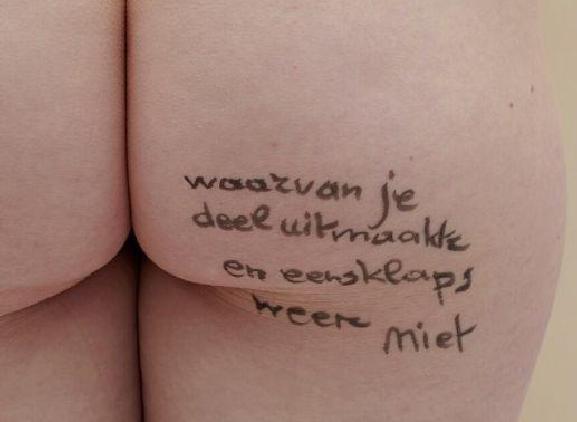 waarvan je
deel uitmaakte
en eensklaps
weer niet